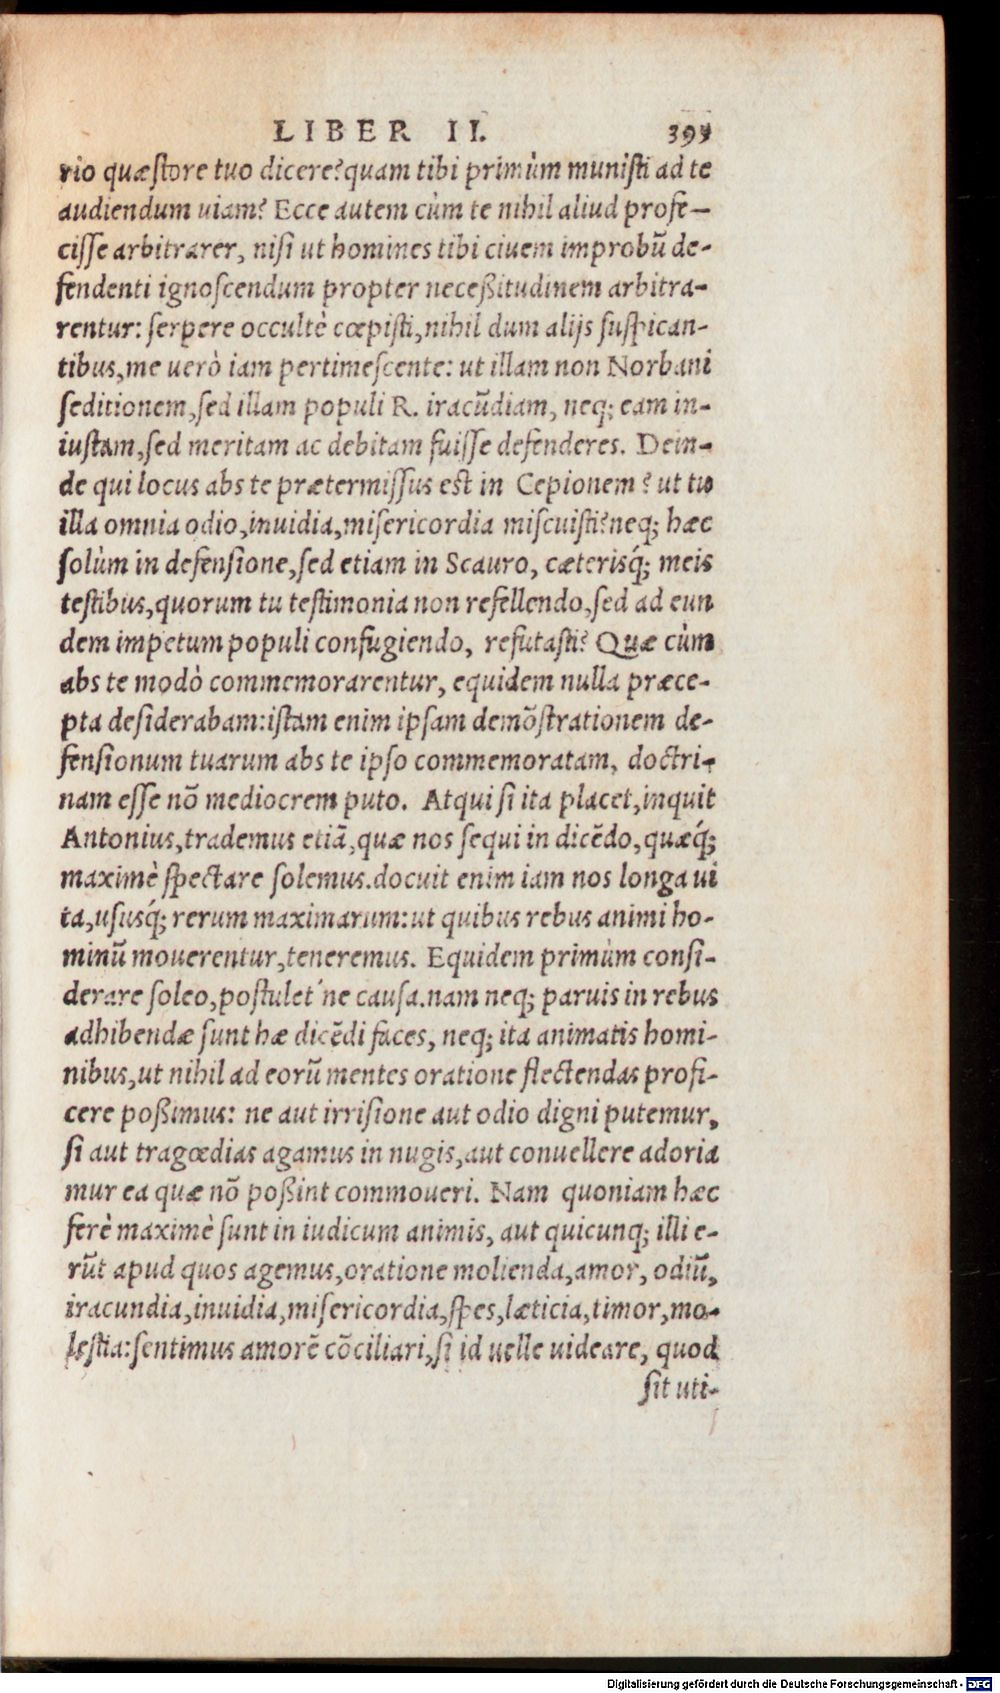 LIBER II. 399
rio quæstore tuo dicere? quam tibi primùm munisti ad te
audiendum uiam? Ecce autem cùm te nihil aliud profe-
cisse arbitrarer, nisi ut homines tibi ciuem improbū de-
fendenti ignoscendum propter necessitudinem arbitra-
rentur: serpere occultè cœpisti, nihil dum alijs suspican-
tibus, me uerò iam pertimescente: ut illam non Norbani
seditionem, sed illam populi R. iracūdiam, neq; eam in-
iustam, sed meritam ac debitam fuisse defenderes. Dein-
de qui locus abs te prætermissus est in Cepionem? ut tu
illa omnia odio, inuidia, misericordia miscuisti? neq; hæc
solùm in defensione, sed etiam in Scauro, cæterisq́; meis
testibus, quorum tu testimonia non refellendo, sed ad eun
dem impetum populi confugiendo, refutasti? Quæ cùm
abs te modò commemorarentur, equidem nulla præce-
pta desiderabam: istam enim ipsam demōstrationem de-
fensionum tuarum abs te ipso commemoratam, doctri-
nam esse nō mediocrem puto. Atqui si ita placet, inquit
Antonius, trademus etiā, quæ nos sequi in dicēdo, quæq́;
maximè spectare solemus. docuit enim iam nos longa ui
ta, ususq́; rerum maximarum: ut quibus rebus animi ho-
minū mouerentur, teneremus. Equidem primùm consi-
derare soleo, postulet'ne causa. nam neq; paruis in rebus
adhibendæ sunt hæ dicēdi faces, neq; ita animatis homi-
nibus, ut nihil ad eorū mentes oratione flectendas profi-
cere possimus: ne aut irrisione aut odio digni putemur,
si aut tragœdias agamus in nugis, aut conuellere adoria
mur ea quæ nō possint commoueri. Nam quoniam hæc
ferè maximè sunt in iudicum animis, aut quicunq; illi e-
rūt apud quos agemus, oratione molienda, amor, odiū,
iracundia, inuidia, misericordia, spes, læticia, timor, mo-
lestia: sentimus amorē cōciliari, si id uelle uideare, quod
sit uti-
Digitalisierung gefördert durch die Deutsche Forschungsgemeinschaft - DFG